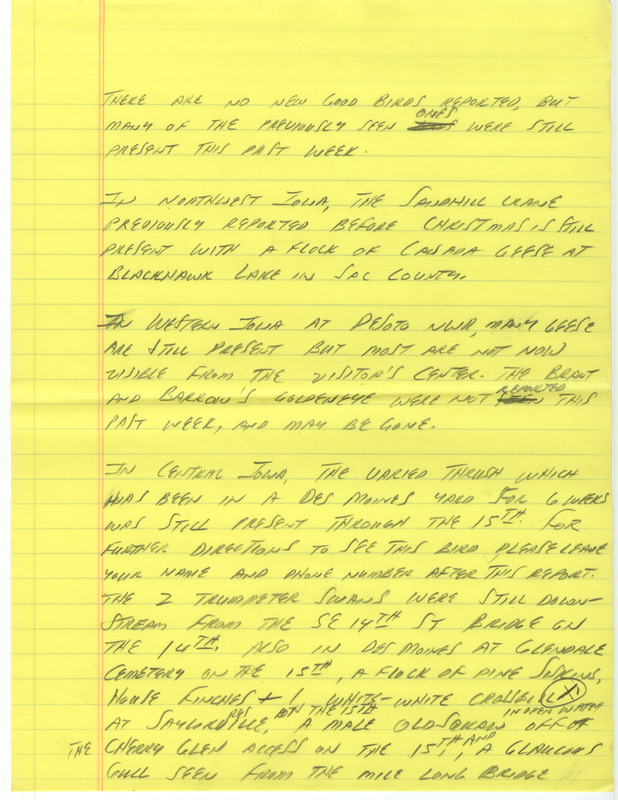 THERE ARE NO NEW GOOD BIRDS REPORTED, BUT
MANY OF THE PREVIOUSLY SEEN ONES WERE STILL
PRESENT THIS PAST WEEK.
IN NORTHWEST IOWA, THE SANDHILL CRANE
PREVIOUSLY REPORTED BEFORE CHRISTMAS IS STILL
PRESENT WITH A FLOCK OF CANADA GEESE AT
BLACKHAWK LAKE IN SAC COUNTY.
IN WESTERN IOWA AT DESOTO NWR, MANY GEESE
ARE STILL PRESENT BUT MOST ARE NOT NOW
VISIBLE FROM THE VISITOR'S CENTER. THE BRANT
AND BARROW'S GOLDENEYE WERE NOT REPORTED THIS
PAST WEEK, AND MAY BE GONE.
IN CENTRAL IOWA, THE VARIED THRUSH WHICH
HAS BEEN IN A DES MOINES YARD FOR 6 WEEKS
WAS STILL PRESENT THROUGH THE 15TH. FOR
FURTHER DIRECTIONS TO SEE THIS BIRD PLEASE LEAVE
YOUR NAME AND PHONE NUMBER AFTER THIS REPORT.
THE 2 TRUMPETER SWANS WERE STILL DOWN-
STREAM FROM THE SE 14TH ST BRIDGE ON
THE 14TH. ALSO IN DES MOINES AT GLENDALE
CEMETERY ON THE 15TH, A FLOCK OF PINE SISKINS,
HOUSE FINCHES + 1 WHITE-WHITE CROSSBILL X1
AT SAYLORVILLE RES, ON THE 15TH, A MALE OLDSQUAW IN OPEN WATER OFF OF
THE CHERRY GLEN ACCESS ON THE 15TH, AND A GLAUCOUS
GULL SEEN FROM THE MILE LONG BRIDGE